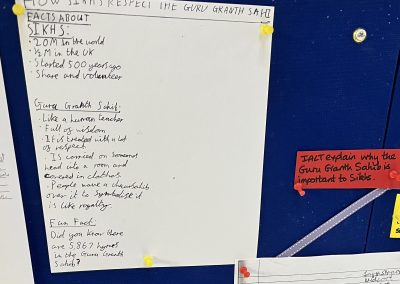 HOW SIKHS RESPECT THE GURU GRANTH SAHIB
FACTS ABOUT
SIKHS:
• 20M in the world
• ½M in the UK
• Started 500 years ago
• Share and volunteer
Guru Granth Sahib:
• Like a human teacher
• Full of wisdom
• It is treated with a lot
of respect
• Is carried on someones
head into a room and
covered in clothes
• People wave a
over it to symbolise it
is like royalty.
Fun Fact:
Did you know there
are 5,867 hymns
in the Guru Granth
Sahib?
IALT explain why the
Guru Granth Sahib is
important to Sikhs.